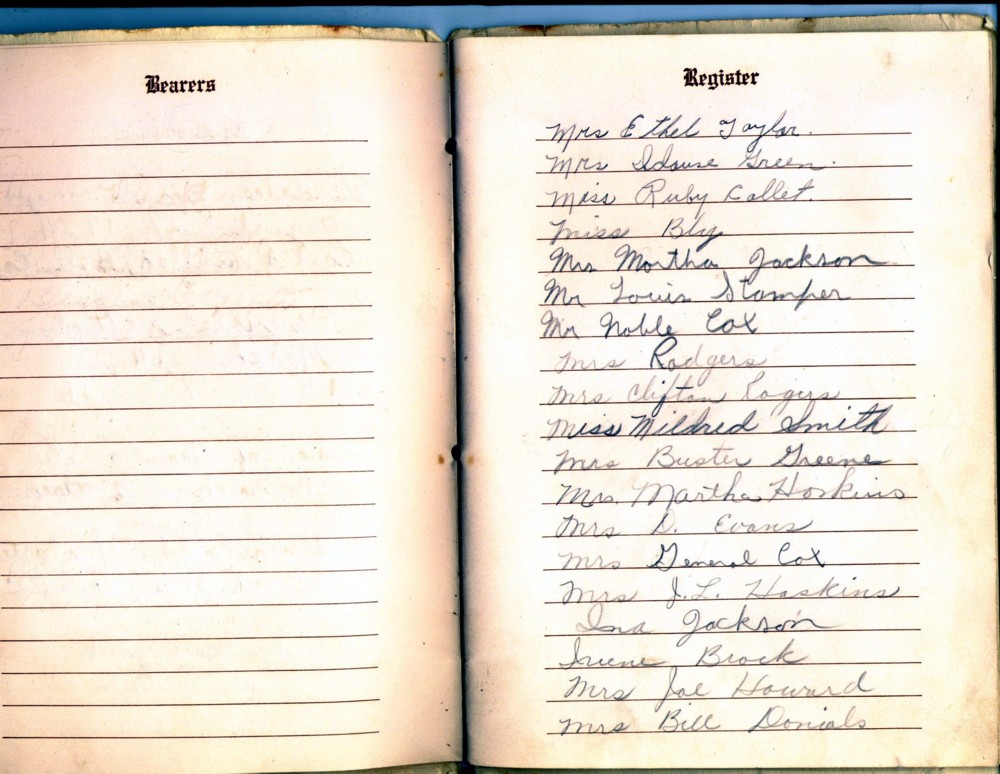 Bearers
Register
Mrs Ethel Taylor.
Mrs Idause Green.
Miss Ruby Collet.
Miss Bly
Mrs Martha Jackson
Mr Louis Stamper
Mr Noble Cox
Mrs Rodgers
Mrs Clifton Rogers
Miss Mildred Smith
Mrs Buster Greene
Mrs. Martha Hoskins
Mrs D. Evans
Mrs General Cox
Mrs J.L. Hoskins
Ina Jackson
Irene Brock
Mrs Joe Howard
Mrs Bill Donials